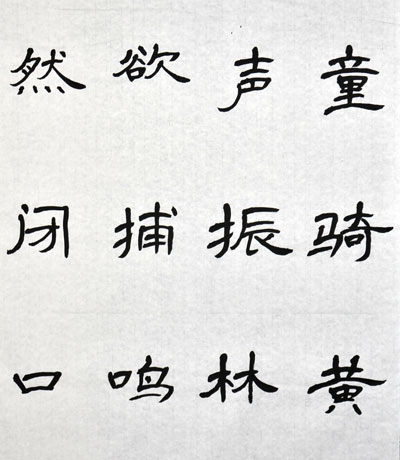 童骑黄
声振林
欲捕鸣
然闭口